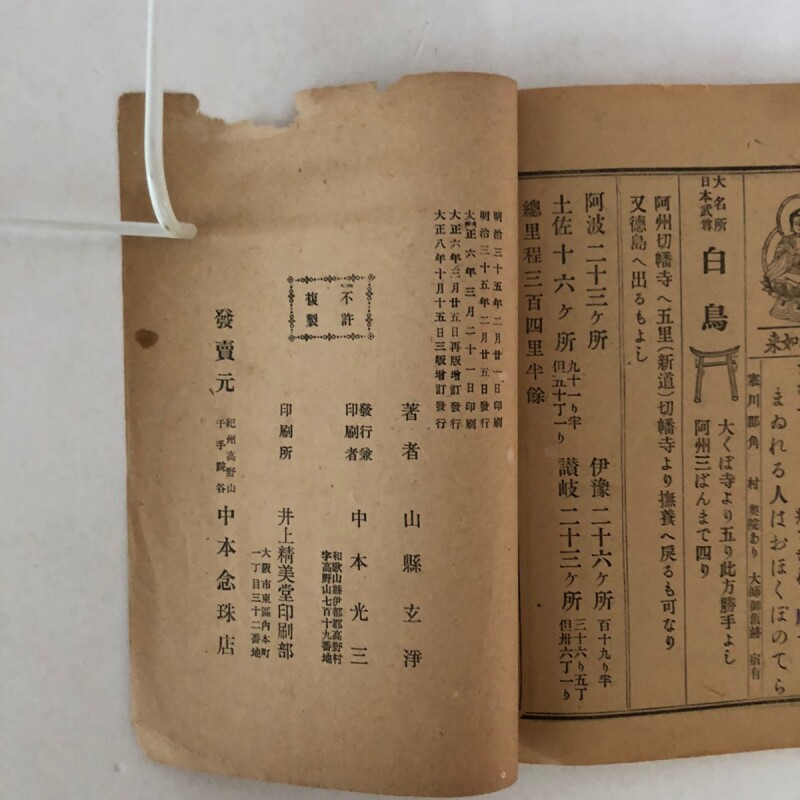 如来
まゐれる人はおほくぼのてら
寒川郡角 村 奥院あり 大師御旧跡 宿有
大名所
日本武尊
白鳥
大くぼ寺より五り此方勝手よし
阿州三ばんまで四り
阿州切幡寺へ五里(新道)切幡寺より撫養へ戻るも可なり
又德島へ出るもよし
阿波二十三ケ所 九十一り半 但五十丁一り
伊豫二十六ケ所 百十九り半
土佐十六ケ所
讃岐二十三ケ所 三十六り五丁 但卅六丁一り
總里程三百四里半餘
明治三十五年二月廿一日印刷
明治三十五年二月廿五日發行
大正六年三月二十一日印刷
大正六年三月廿五日再版增訂發行
大正八年十月十五日三版增訂發行
不許
複製
著者 山縣玄淨
發行兼
印刷者
中本光三
和歌山縣伊都郡高野村
字高野山七百十九番地
印刷所 井上精美堂印刷部
大阪市東區內本町
一丁目三十二番地
發賣元
紀州高野山
千手院谷
中本念珠店